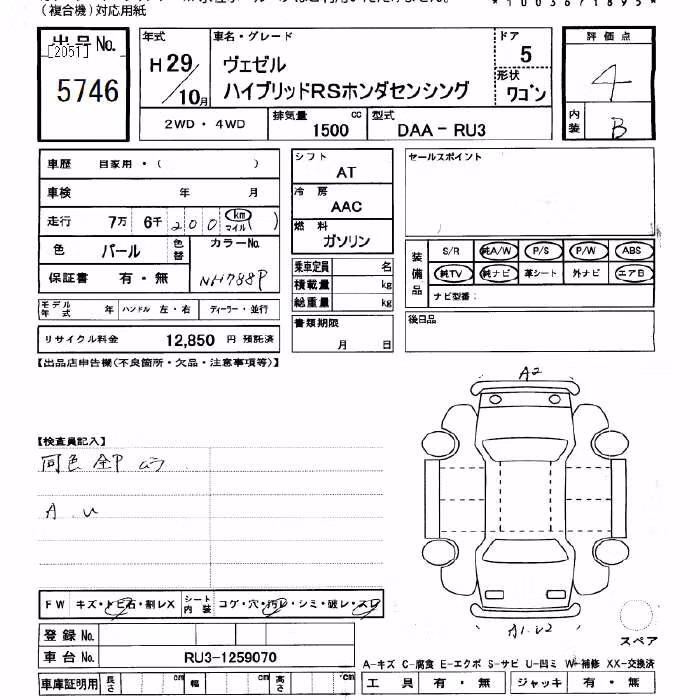 (複合機)対応用紙
*1003671895*
出品No.
[2051]
5746
年式
H29/10月
車名・グレード
ヴェゼル
ハイブリッドRSホンダセンシング
ドア
5
形状
ワゴン
評価点
4
内装
B
2WD・4WD
排気量
1500 cc
型式
DAA-RU3
車歴 自家用・( )
車検 年 月
走行 7万 6千 200 (km マイル)
色 パール 色替
カラーNo.
NH788P
保証書 有・無
モデル年式 年 ハンドル 左・右 ディーラー・並行
リサイクル料金 12,850 円 預託済
シフト
AT
冷房
AAC
燃料
ガソリン
乗車定員 名
積載量 kg
総重量 kg
書類期限
月 日
セールスポイント
装備品
S/R 純A/W P/S P/W ABS
純TV 純ナビ 革シート 外ナビ エアB
ナビ型番:
後日品
【出品店申告欄(不良箇所・欠品・注意事項等)】
【検査員記入】
同色 全P ムラ
A U
A2
A1.U2
FW キズ・トビ石・割レX シート内装 コゲ・穴・汚レ・シミ・破レ・スレ
登録No.
車台No. RU3-1259070
車庫証明用 長さ cm 幅 cm 高さ cm
スペア
A-キズ C-腐食 E-エクボ S-サビ U-凹ミ W-補修 XX-交換済
工具 有・無 ジャッキ 有・無